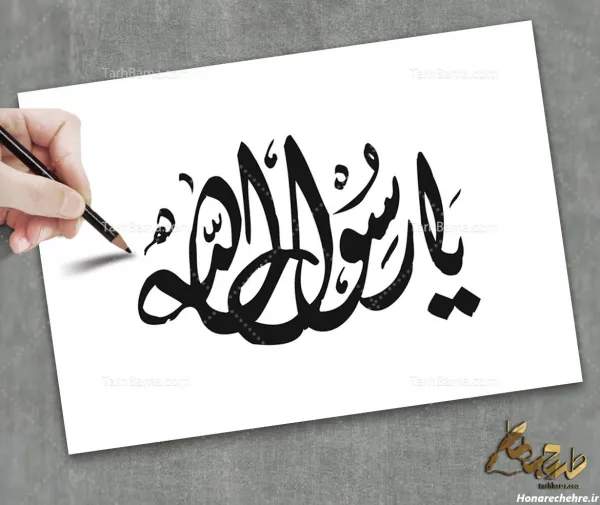 TarhBama.com TarhBama.com
یا رسول الله
TarhBama.com TarhBama.com
TarhBama.com TarhBama.com
طرح با ما
tarhbama.com
Honarechehre.ir